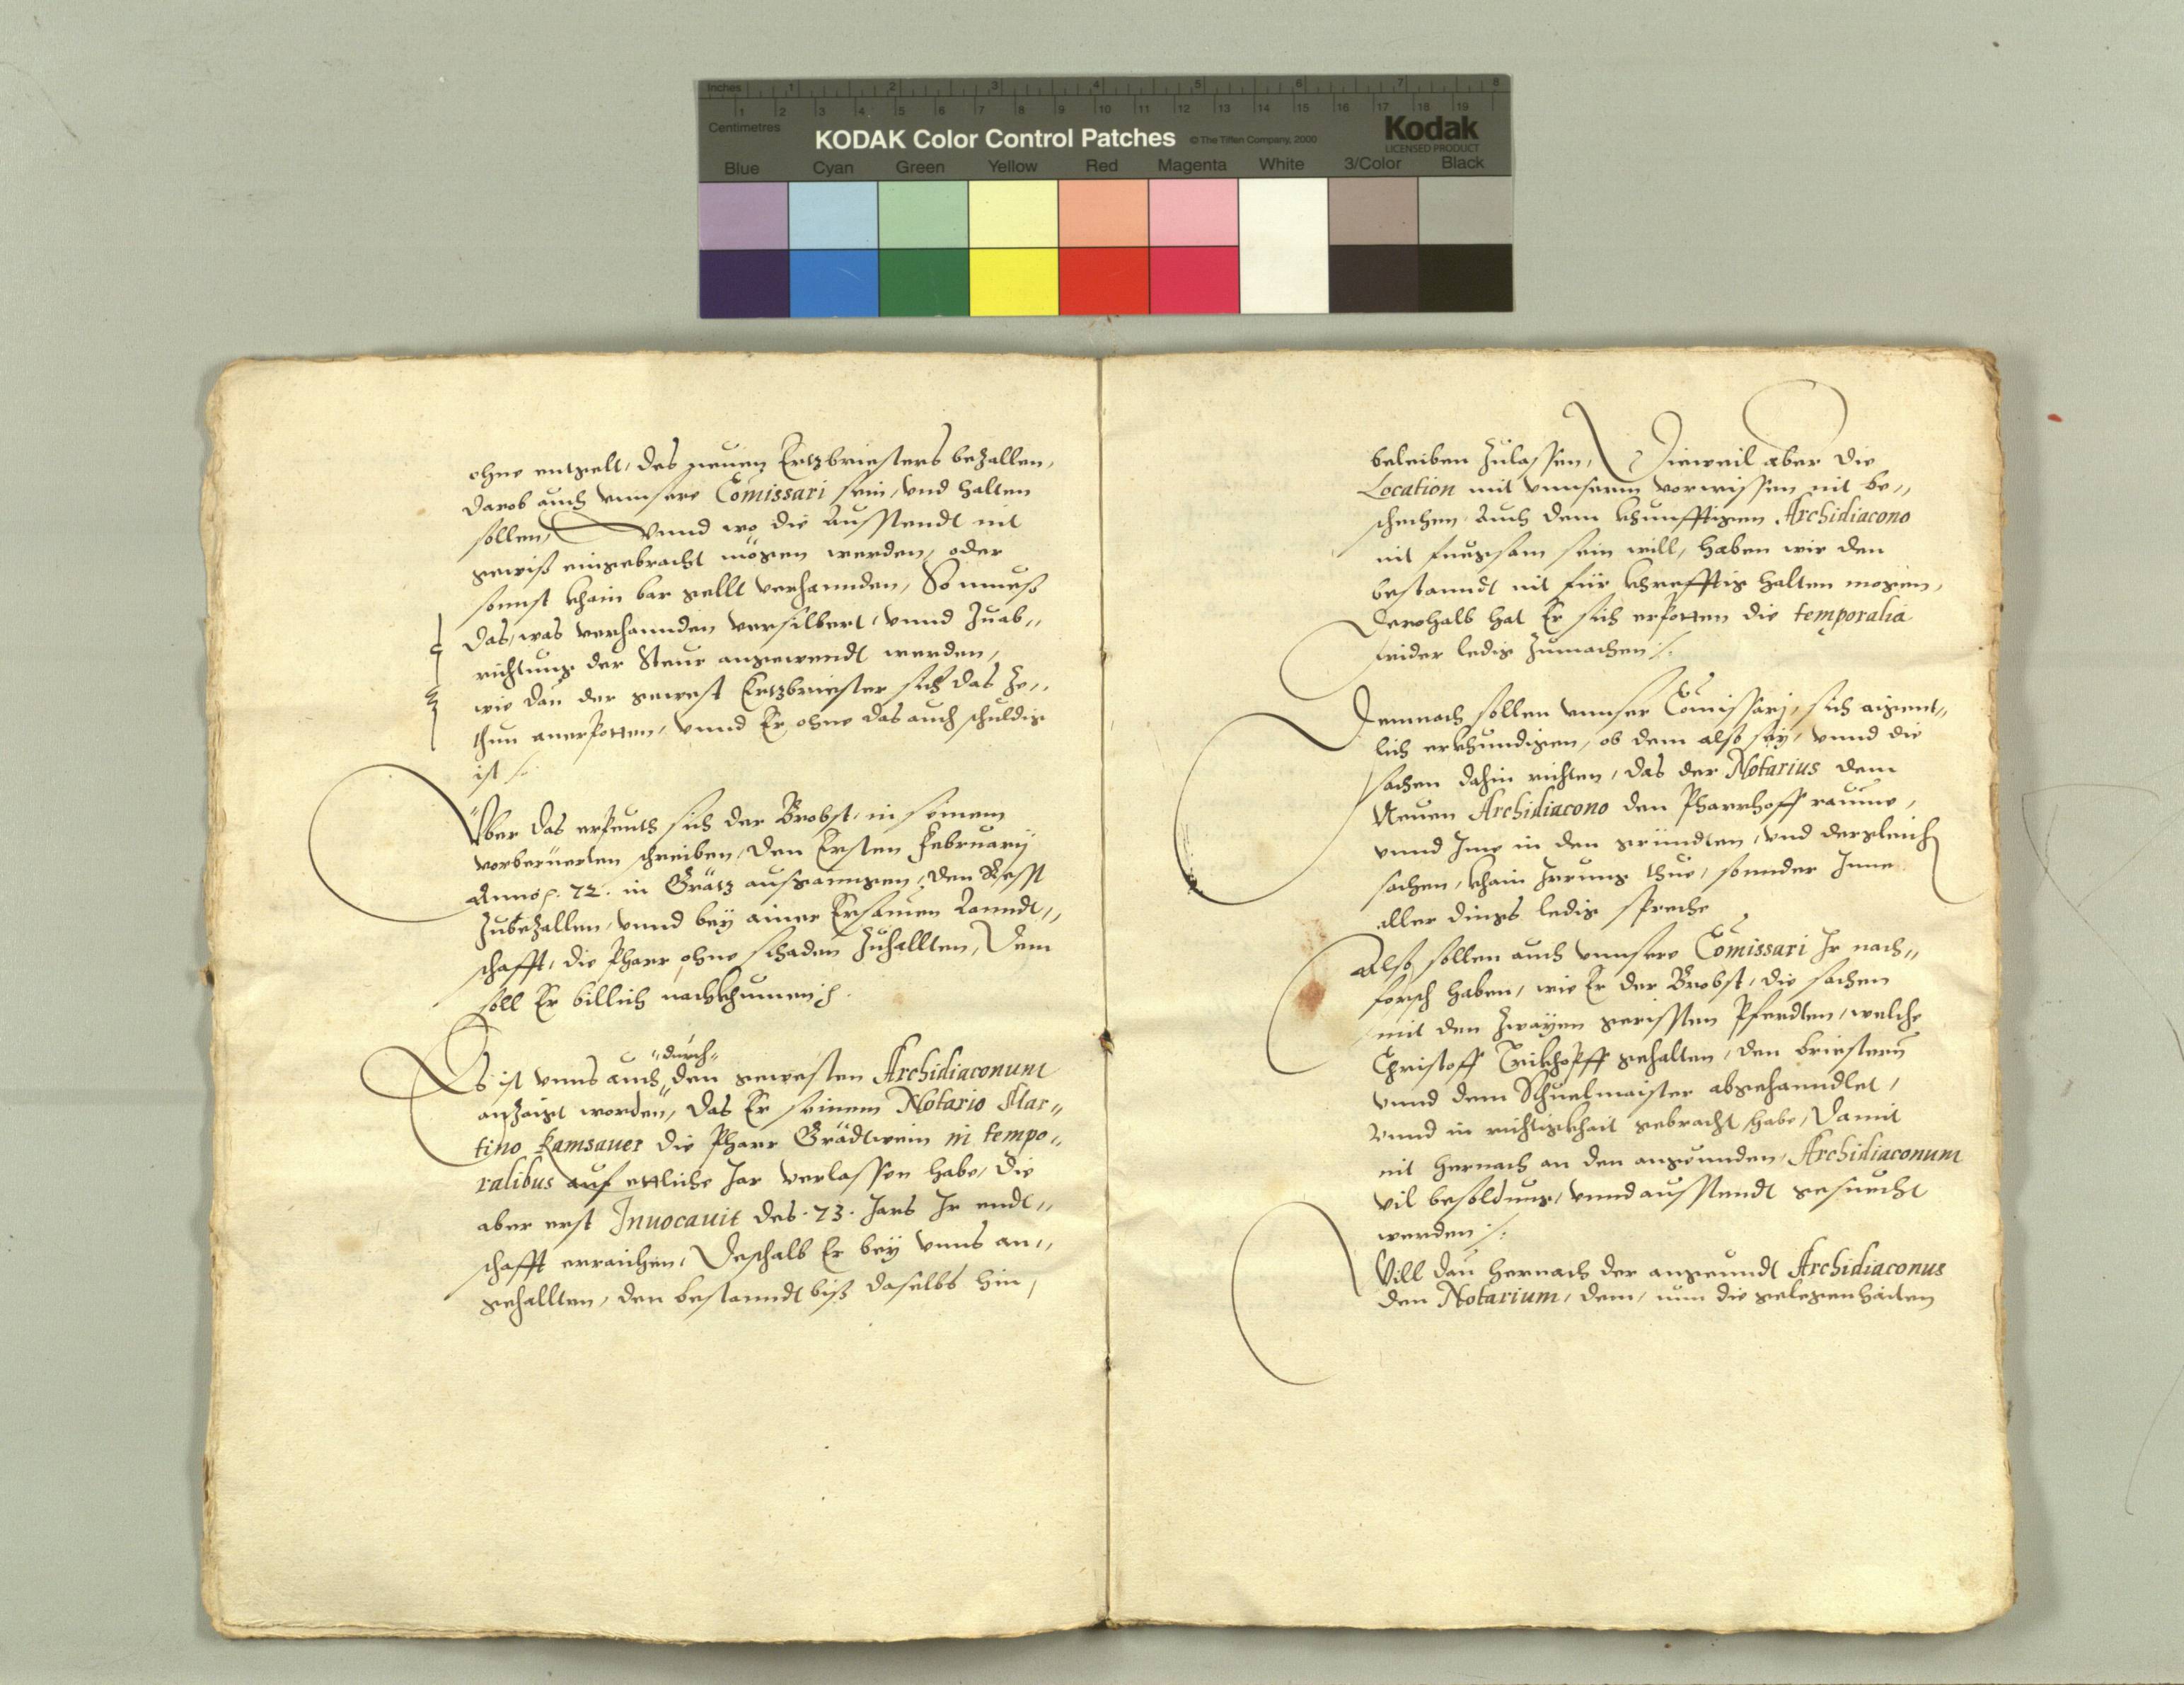 Inches 1 2 3 4 5 6 7 8
1 2 3 4 5 6 7 8 9 10 11 12 13 14 15 16 17 18 19
Centimetres
KODAK Color Control Patches © The Tiffen Company, 2000 Kodak
LICENSED PRODUCT
Blue Cyan Green Yellow Red Magenta White 3/Color Black
ohne entgelt, des neuen Ertzbriesters bezallen,
darob auch unnsere Comissari sein, und halten
sollen, Unnd wo die Ausstendt nit
gewiß eingebracht mögen werden, oder
sonnst khain bar gellt verhannden, So mueß
das, was verhannden versilbert, unnd zuab„
richtung der Steur angewendt werden,
wie dan der gewest Ertzbriester sich das ze„
thun anerpotten, unnd Er, ohne das auch schuldig
ist /:
Uber das erpeuth sich der Brobst, in seinem
vorberüerten schreiben, den Ersten February
Anno 72. in Grätz ausgangen, den Resst
zubezallen, unnd bey ainer Ersamen Lanndt„
schafft, die Pharr, ohne schaden zuhallten, Dem
soll Er billich nachkhumen /:
„durch„
Es ist unns auch, den gewesten Archidiaconum
anzaigt worden, das Er seinem Notario Mar„
tino Ramsauer die Pharr Grädtwein in tempo„
ralibus auf ettliche Jar verlassen habe, die
aber erst Inuocauit des .73. Jars Ir endt„
schafft erraichen, Deshalb Er bey unns an„
gehallten, den bestanndt biß daselbs hin,
beleiben zulassen, Dieweil aber die
Location mit unnserm vorwissen nit be„
schechen, Auch dem khunfftigen Archidiacono
nit fuegsam sein will, haben wir den
bestanndt nit für khrefftig halten mögen,
Derohalb hat Er sich erpotten die temporalia
wider ledig zumachen /:
Demnach sollen unnser Comissarj, sich aigent„
lich erkhundigen, ob dem also sey, unnd die
sachen dahin richten, das der Notarius dem
Neuen Archidiacono den Pharrhoff raume,
unnd Ime in den gründten, und dergleich
sachen, khain Irrung thue, sonnder Inne
aller dings ledig spreche
Also sollen auch unnsere Comissari Ir nach„
forsch haben, wie Er der Brobst, die sachen
mit den zwayen gerissten Pferdten, welche
Christoff gehalten, den briestern
unnd dem Schuelmaister abgehanndlet,
Unnd in richtigkhait gebracht habe, Damit
nit hernach an den angeunden Archidiaconum
vil besoldung, unnd ausstendt gesuecht
werden /:
Will dan hernach der angeundt Archidiaconus
den Notarium, dem, nun die gelegenhaiten